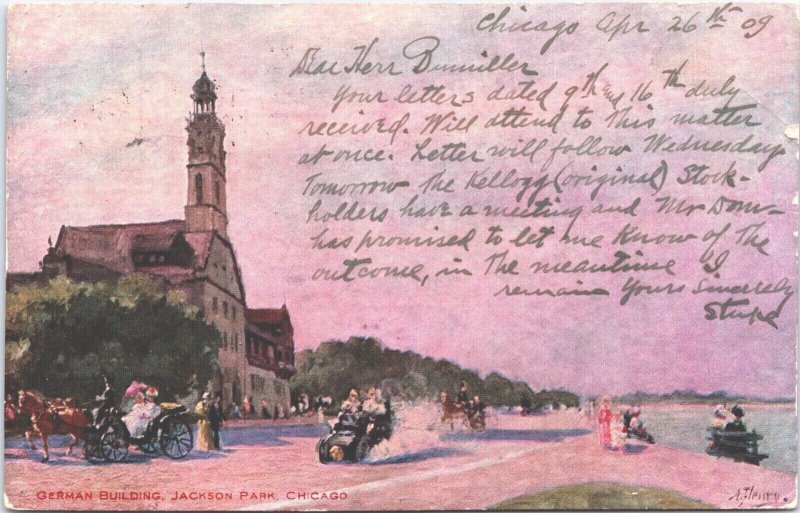 Chicago Apr 26th 09
Dear Herr Bumiller
Your letters dated 9th and 16th duly
received. Will attend to this matter
at once. Letter will follow Wednesday
Tomorrow the Kellogg (original) Stock-
holders have a meeting and Mr Dom-
has promised to let me know of the
outcome, in the meantime I
remain Yours Sincerely
GERMAN BUILDING, JACKSON PARK, CHICAGO